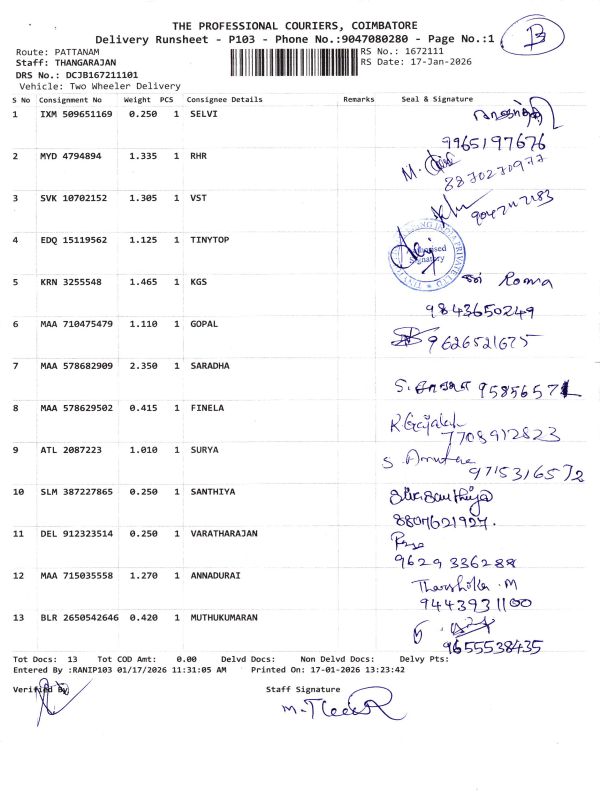 THE PROFESSIONAL COURIERS, COIMBATORE
Delivery Runsheet - P103 - Phone No.:9047080280 - Page No.:1
B
Route: PATTANAM
RS No.: 1672111
Staff: THANGARAJAN
RS Date: 17-Jan-2026
DRS No.: DCJB167211101
Vehicle: Two Wheeler Delivery
S No Consignment No Weight PCS Consignee Details Remarks Seal & Signature
1 IXM 509651169 0.250 1 SELVI
9965197676
2 MYD 4794894 1.335 1 RHR
M.
8870270977
3 SVK 10702152 1.305 1 VST
4 EDQ 15119562 1.125 1 TINYTOP
Authorised
Signatory
5 KRN 3255548 1.465 1 KGS
Roma
9843650249
6 MAA 710475479 1.110 1 GOPAL
9626521675
7 MAA 578682909 2.350 1 SARADHA
S.
8 MAA 578629502 0.415 1 FINELA
7708912823
9 ATL 2087223 1.010 1 SURYA
S.
9715316572
10 SLM 387227865 0.250 1 SANTHIYA
8807621927.
11 DEL 912323514 0.250 1 VARATHARAJAN
9629336288
12 MAA 715035558 1.270 1 ANNADURAI
M
9443931100
13 BLR 2650542646 0.420 1 MUTHUKUMARAN
9655538435
Tot Docs: 13 Tot COD Amt: 0.00 Delvd Docs: Non Delvd Docs: Delvy Pts:
Entered By :RANIP103 01/17/2026 11:31:05 AM Printed On: 17-01-2026 13:23:42
Verified By Staff Signature